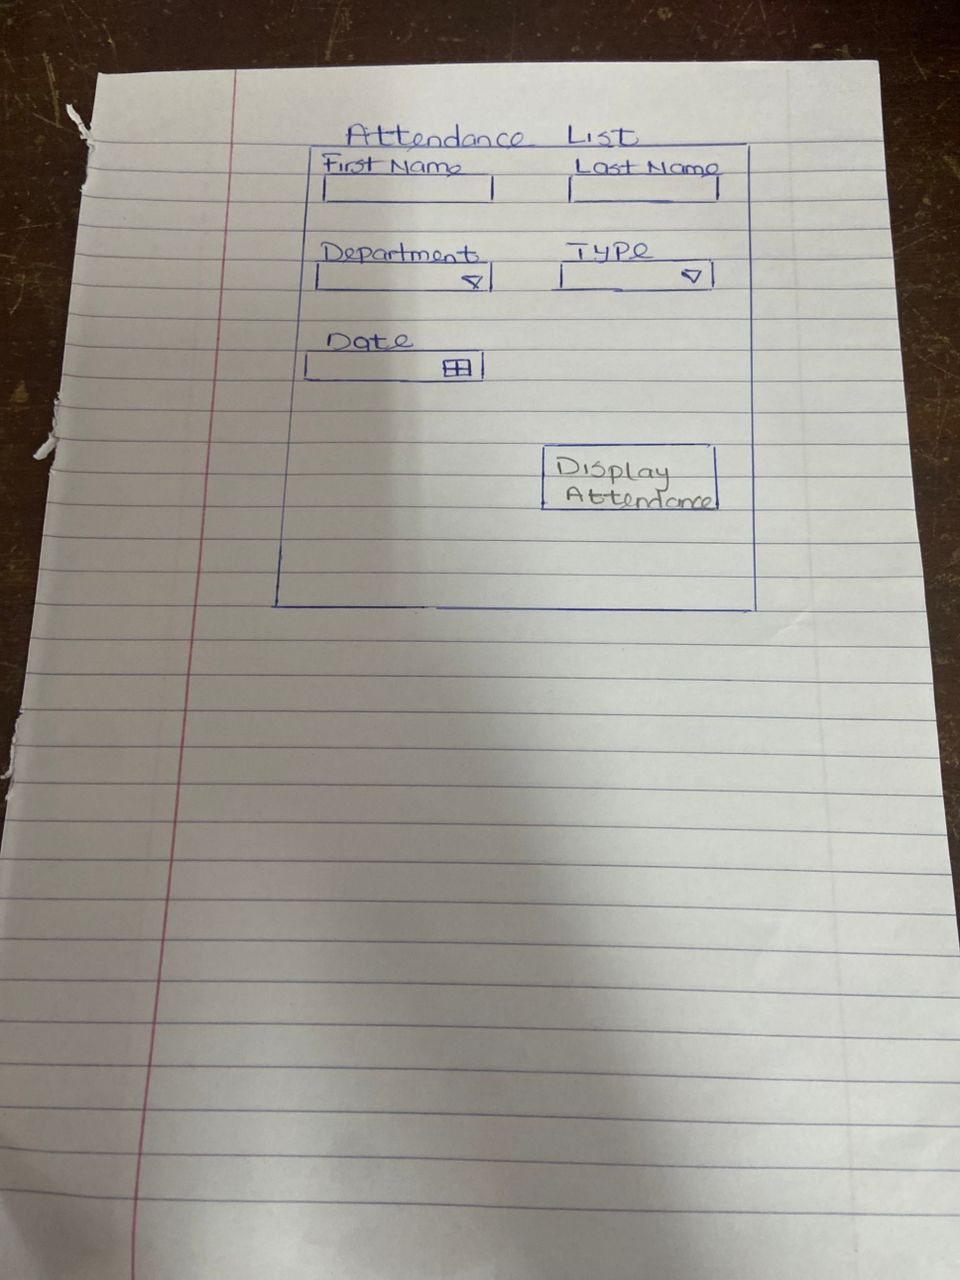 Attendance List
First Name Last Name
Department Type
Date
Display
Attendance